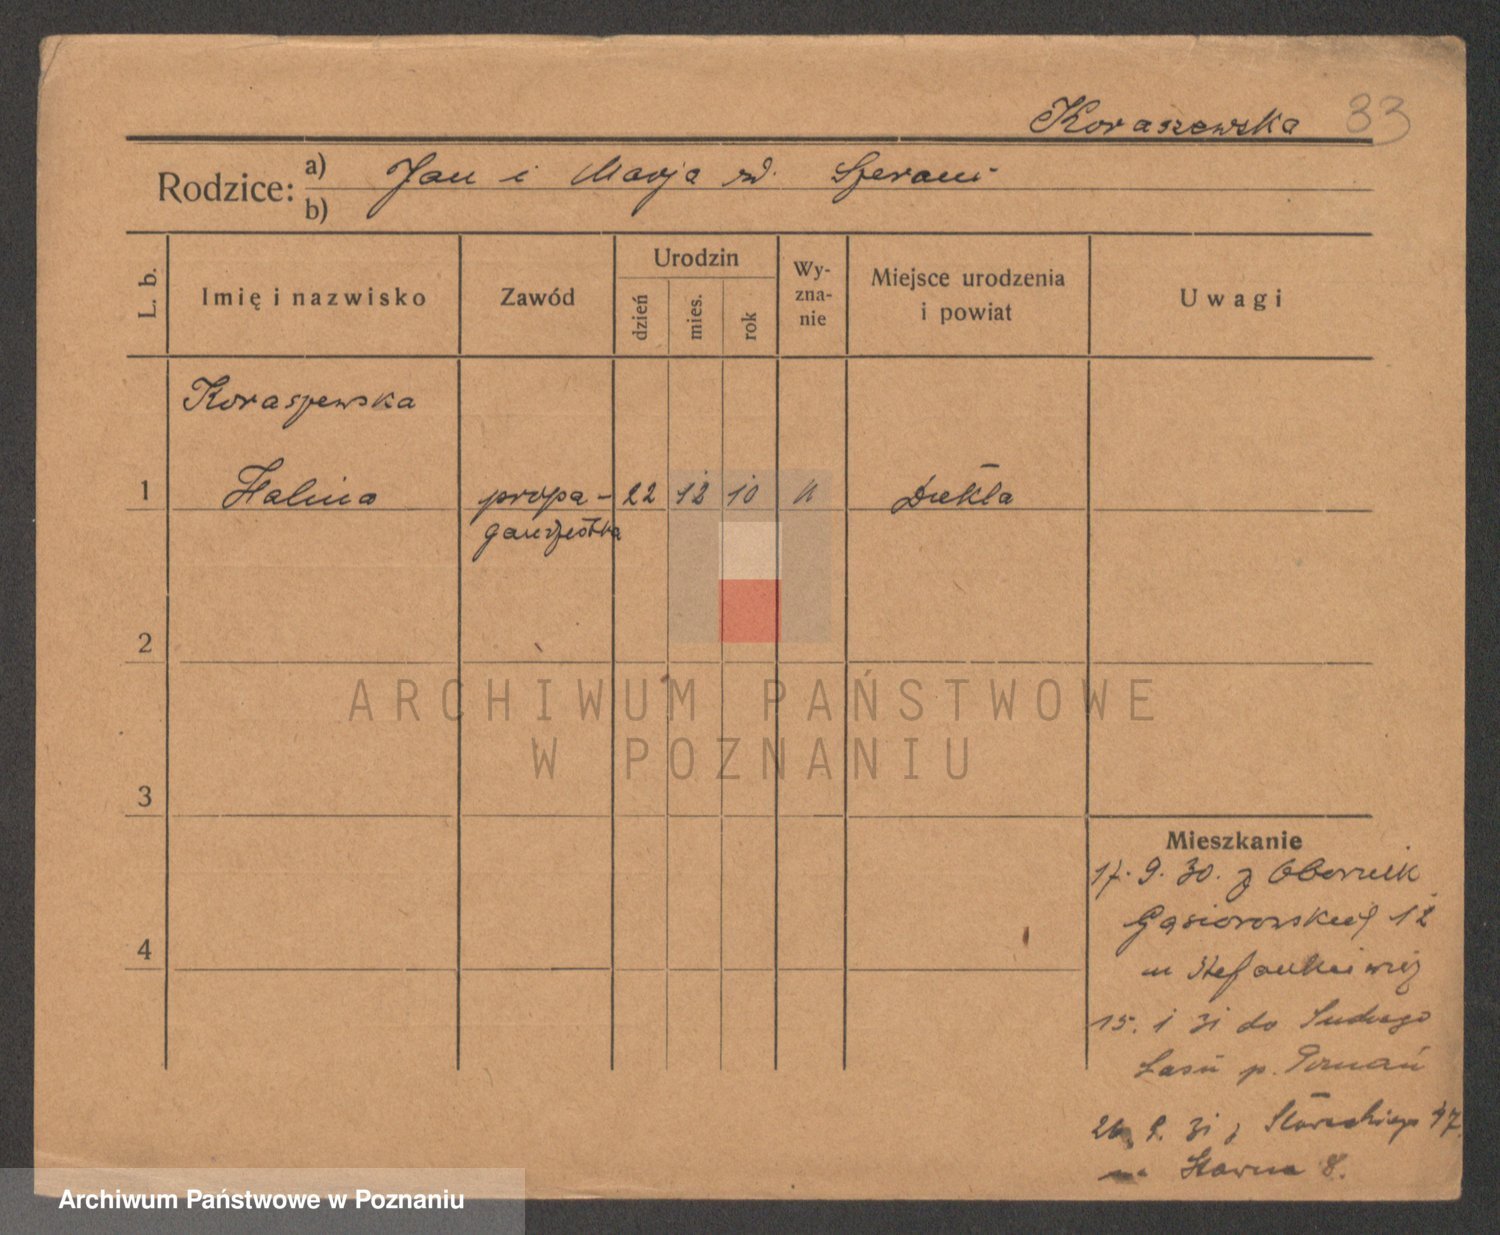 Koraszewska 33
Rodzice: a) Jan i Marja zd. Szerauc
b)
L. b. Imię i nazwisko Zawód Urodzin dzień mies. rok Wy-zna-nie Miejsce urodzenia i powiat Uwagi
Koraszewska
1 Halina propa- 22 12 10 k Dukla
gandzistka
2
3
4
ARCHIWUM PAŃSTWOWE
W POZNANIU
Mieszkanie
17. 9. 30. z Obornik
Gąsiorowskich 12
15. 1 31 do Suchego
Lasu p. Poznań
31 z Słowackiego 47
8.
Archiwum Państwowe w Poznaniu